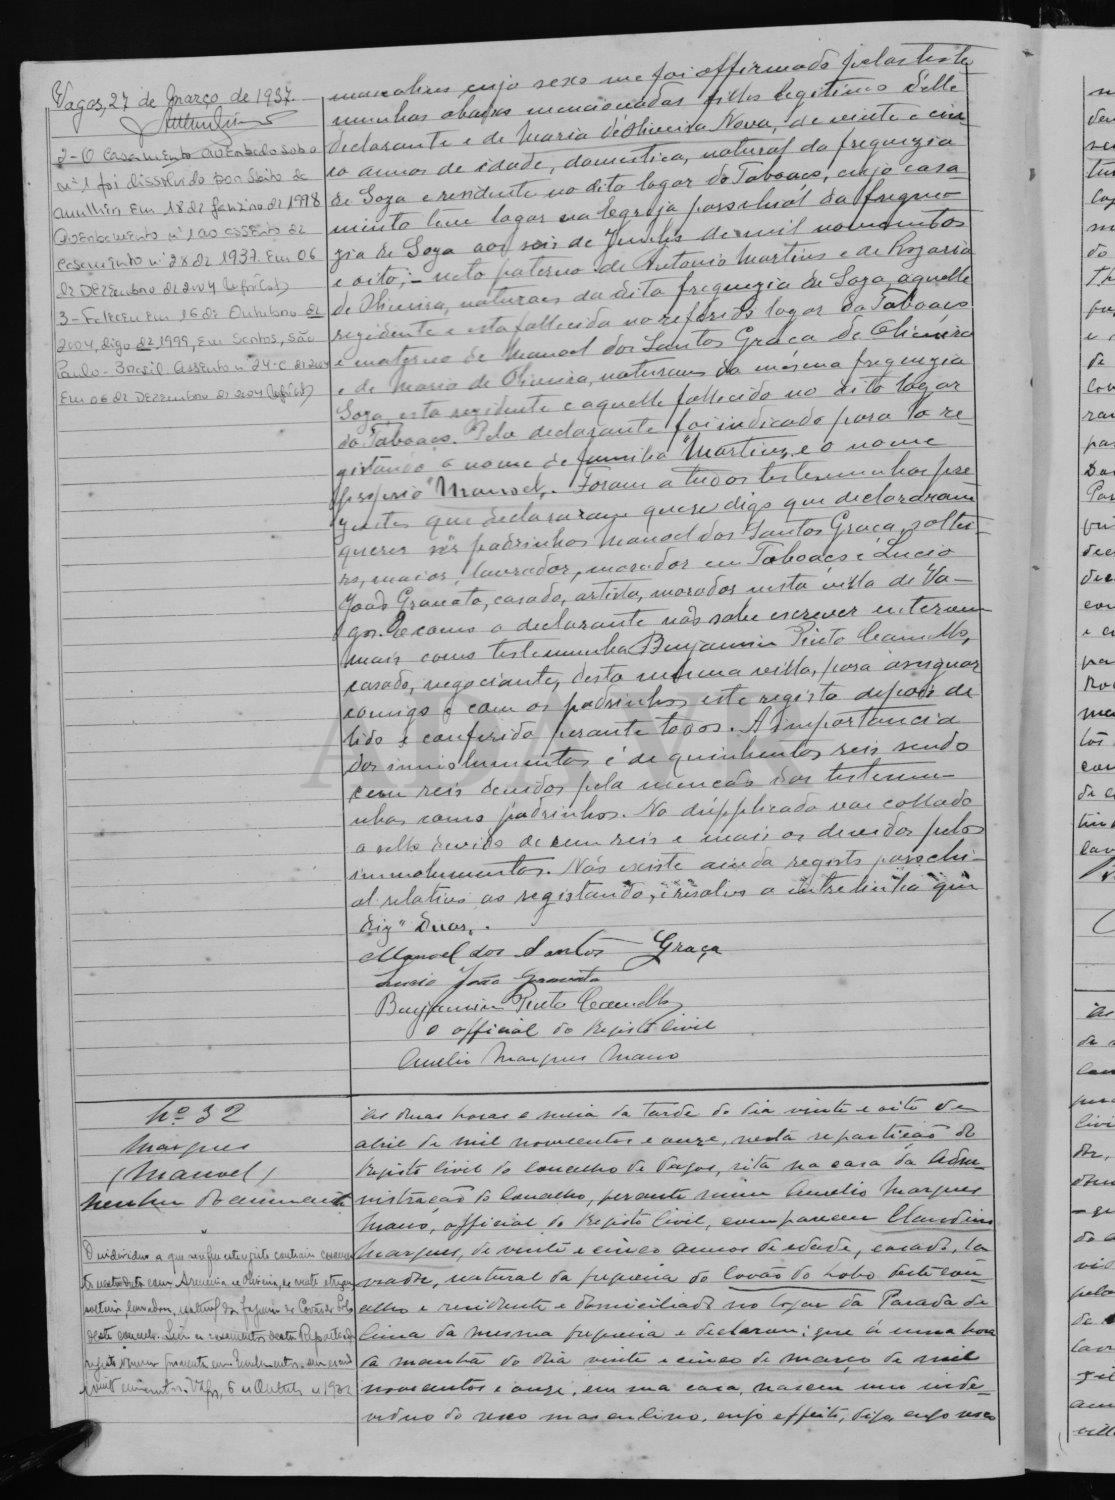 Vagos, 27 de Março de 1937.
2 - O casamento averbado sob o
nº 1 foi dissolvido por óbito da
mulher em 18 de Janeiro de 1998
Averbamento nº 1 ao assento de
casamento nº 28 de 1937. Em 06
de Dezembro de 2004
3 - Faleceu em 16 de Outubro de
2004, digo de 1999, em Santos, São
Paulo - Brasil Assento nº 24-C de 2004
Em 06 de Dezembro de 2004
masculino cujo sexo me foi affirmado pelas teste
munhas abaixo mencionadas filho legitimo d'elle
declarante e de Maria d'Oliveira Nova, de vinte e cin
co annos de idade, domestica, natural da freguezia
de Soza e residente no dito logar do Taboaco, cujo casa
mento teve logar na Iegreja parochial da fregue
zia de Soza aos seis de Junho de mil novecentos
e oito; - neto paterno de Antonio Martins e de Rozaria
de Oliveira, naturaes da dita freguezia de Soza aquelle
rezidente e esta fallecida no referido logar do Taboaco
e materno de Manoel dos Santos Graca de Oliveira
e de Maria de Oliveira, naturaes da mesma freguezia
Soza, esta rezidente e aquelle fallecido no dito logar
do Taboaco. Pelo declarante foi indicado para o re-
gistando o nome de familia "Martins" e o nome
proprio "Manoel". Foram a tudos testemunhas pre
zentes que declararam querer digo que declararam
querer ser padrinhos Manoel dos Santos Graca, soltei-
ro, maior, lavrador, morador em Taboaco e Lucio
João Gravato, casado, artista, morador nesta villa de Va-
gos. E como o declarante não sabe escrever interveio
mais como testemunha Benjamin Pinto Camello,
casado, negociante, desta mesma villa, para assignar
comigo e com os padrinhos este registo depois de
lido e conferido perante todos. A importancia
dos immolumentos é de quinhentos reis sendo
cem reis devidos pela menção das testemu-
nhas como padrinhos. No dupplicado vae collado
o sello devido de cem reis e mais os devidos pelos
immolumentos. Não existe ainda registo parochi-
al relativo ao registando, e resalvo a intrelinha que
diz "duas".
Manoel dos Santos Graça
Lucio João Gravato
Benjamin Pinto Camello
O official do Registo Civil
Aurelio Marques Mano
Nº 32
Marques
(Manoel)
Nenhum documento
O individuo a que
com Arminia de Oliveira,
lavradora, natural da freguesia de Covão do Lobo
deste concelho.
Vagos, 6 de Outubro de 1932
Ás duas horas e meia da tarde do dia vinte e oito de
abril de mil novecentos e onze, nesta repartição do
Registo Civil do Concelho de Vagos, sita na casa da Admi-
nistração do Concelho, perante mim Aurelio Marques
Mano, official do Registo Civil, compareceu Claudino
Marques, de vinte e cinco annos de edade, casado, la
vrador, natural da freguesia do Covão do Lobo deste con-
celho e residente e domiciliado no logar da Parada de
Cima da mesma freguesia e declarou: que á uma hora
da manhã do dia vinte e cinco de março de mil
novecentos e onze, em sua casa, nasceu um inde-
viduo do sexo masculino, cujo effeito, digo, cujo sexo